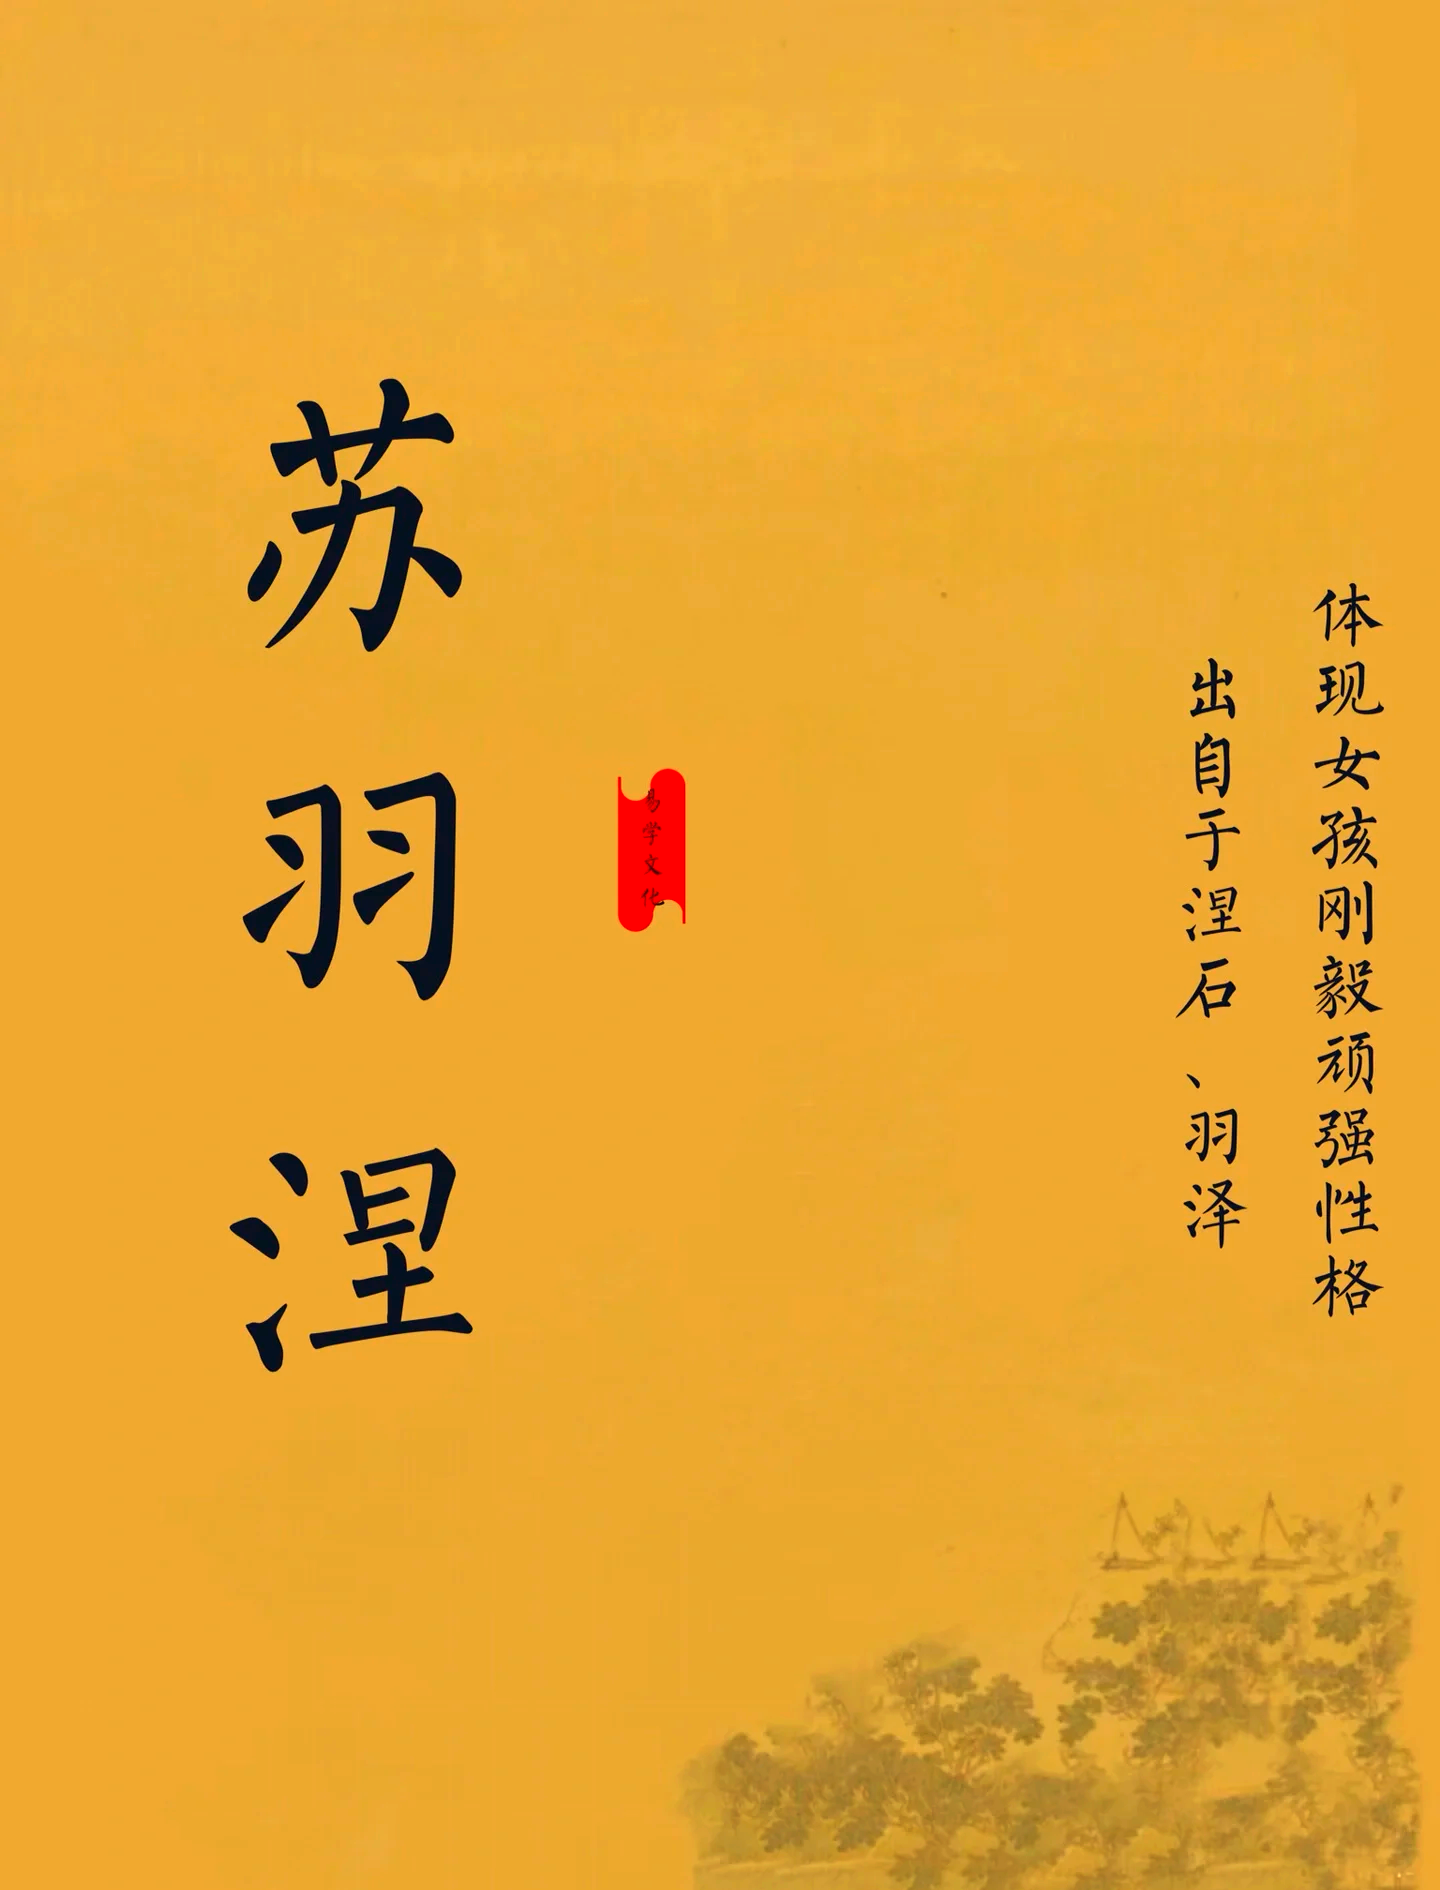 体现女孩刚毅顽强性格
出自于涅石、羽泽
易学文化
苏羽涅